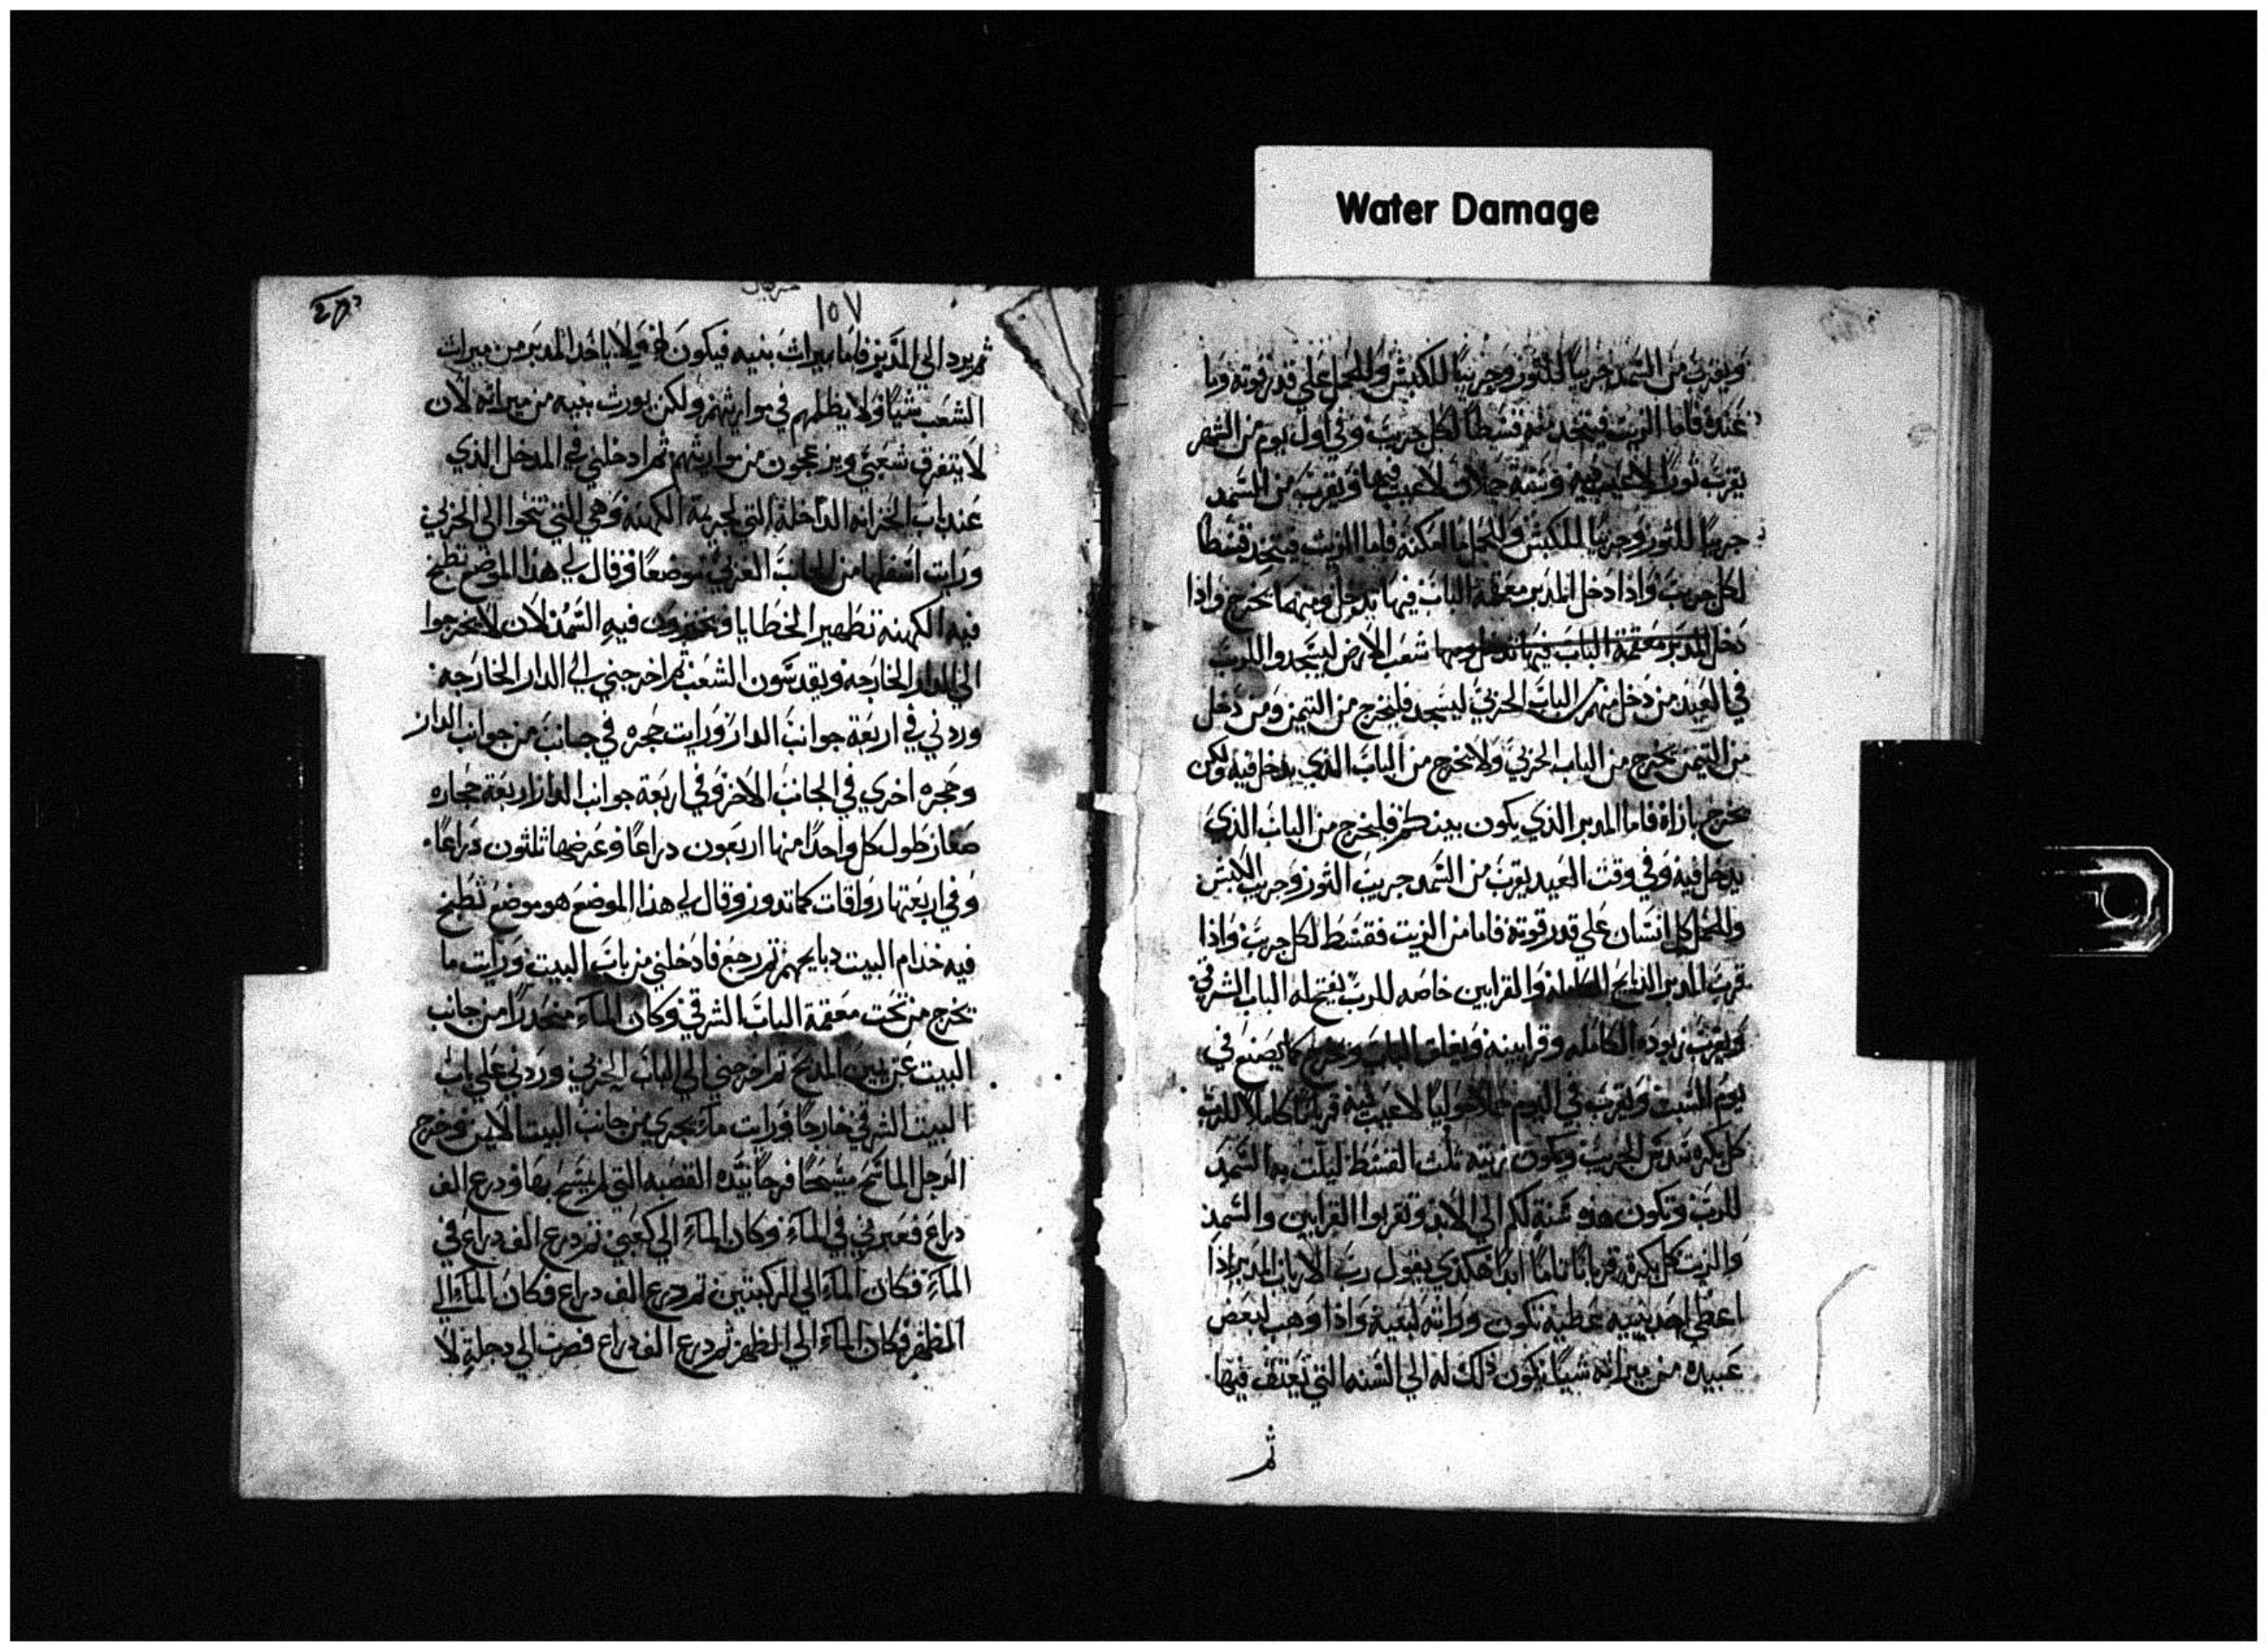 Water Damage
ويقرب من السمد جريبًا للثور وجريبًا للكبش وللحمل علي قدر قوته وما
عنده فاما الزيت فيتخذ منه قسطًا لكل جريب وفي اول يوم من الشهر
يقرب ثورًا لا عيب فيه وستة حملان لا عيب فيها ويقرب من السمد
جريبًا للثور وجريبًا للكبش وللحمل ما امكنه فاما الزيت فيتخذ قسطًا
لكل جريب واذا دخل المدبر معقمة الباب فيها يدخل ومنها يخرج واذا
دخل المدبر معقمة الباب فيها يدخل ومنها شعب الارض ليسجدوا للرب
في العيد من دخل منهم من الباب الجربي ليسجد فليخرج من التيمن ومن دخل
من التيمن يخرج من الباب الجربي ولا يخرج من الباب الذي يدخل فيه ولكن
يخرج بازاه فاما المدبر الذي يكون بينكم فليخرج من الباب الذي
يدخل فيه وفي وقت العيد يقرب من السمد جريب الثور وجريب الكبش
والحمل كل انسان علي قدر قوته فاما من الزيت فقسط لكل جريب واذا
قرب المدبر الذبايح الكاملة والقرابين خاصه للرب يفتح له الباب الشرقي
ويقرب وقوده الكامله وقرابينه ويغلق الباب ويخرج كما يصنع في
يوم السبت ويقرب في اليوم حملًا حوليًا لا عيب فيه قربانًا كاملًا للرب
كل بكره سدس الجريب ويكون زيته ثلث القسط ليلت به السمد
للرب وتكون هذه سنة لكم الي الابد وتقربوا القرابين والسمد
والزيت كل بكرة قربانًا تامًا ابدًا هكذي يقول رب الارباب المدبر اذا
اعطي احد بنيه عطية تكون وراثه لبنيه واذا وهب لبعض
عبيده من ميراثه شيًا يكون ذلك له الي السنه التي يعتق فيها
ثم
١٥٧
ثم يرد الي المدبر فاما ميراث بنيه فيكون لهم ولا ياخذ المدبر من ميراث
الشعب شيًا ولا يظلمهم في مواريثهم ولكن يورث بنيه من ميراثه لان
لا يتفرق شعبي ويزعجون من مواريثهم ثم ادخلني في المدخل الذي
عند باب الخزانه الداخلة التي لجربية الكهنه وهي التي تنحوا الي الجربي
ورايت اسفلها من الجانب الغربي موضعًا وقال لي هذا الموضع تطبخ
فيه الكهنه تطهير الخطايا ويخبزون فيه السمد لان لا يخرجوا
الي الدار الخارجه ويقدسون الشعب ثم اخرجني الي الدار الخارجه
وردني في اربعة جوانب الدار ورايت حجره في جانب من جوانب الدار
وحجره اخري في الجانب الاخر وفي اربعة جوانب الدار اربعة حجاره
صغار طول كل واحدًا منها اربعون دراعًا وعرضها ثلثون دراعًا
وفي اربعتها رواقات كما تدور وقال لي هذا الموضع هو موضع تطبخ
فيه خدام البيت دبايحهم ثم رجع فادخلني من باب البيت ورايت ما
يخرج من تحت معقمة الباب الشرقي وكان الماء منحدرًا من جانب
البيت عن يمين المذبح ثم اخرجني الي الباب الجربي وردني علي باب
البيت الشرقي خارجًا ورايت ماء يجري من جانب البيت الايمن وخرج
الرجل الماسح ممسحًا فرحًا بيده القصبه التي يمسح بها ودرع الف
دراع فعبر بي في الماء وكان الماء الي كعبي ثم درع الف دراع في
الماء فكان الماء الي الركبتين ثم درع الف دراع فكان الماء الي
الظهر فكان الماء الي الظهر ثم درع الف دراع فصرت الي دجلة لا